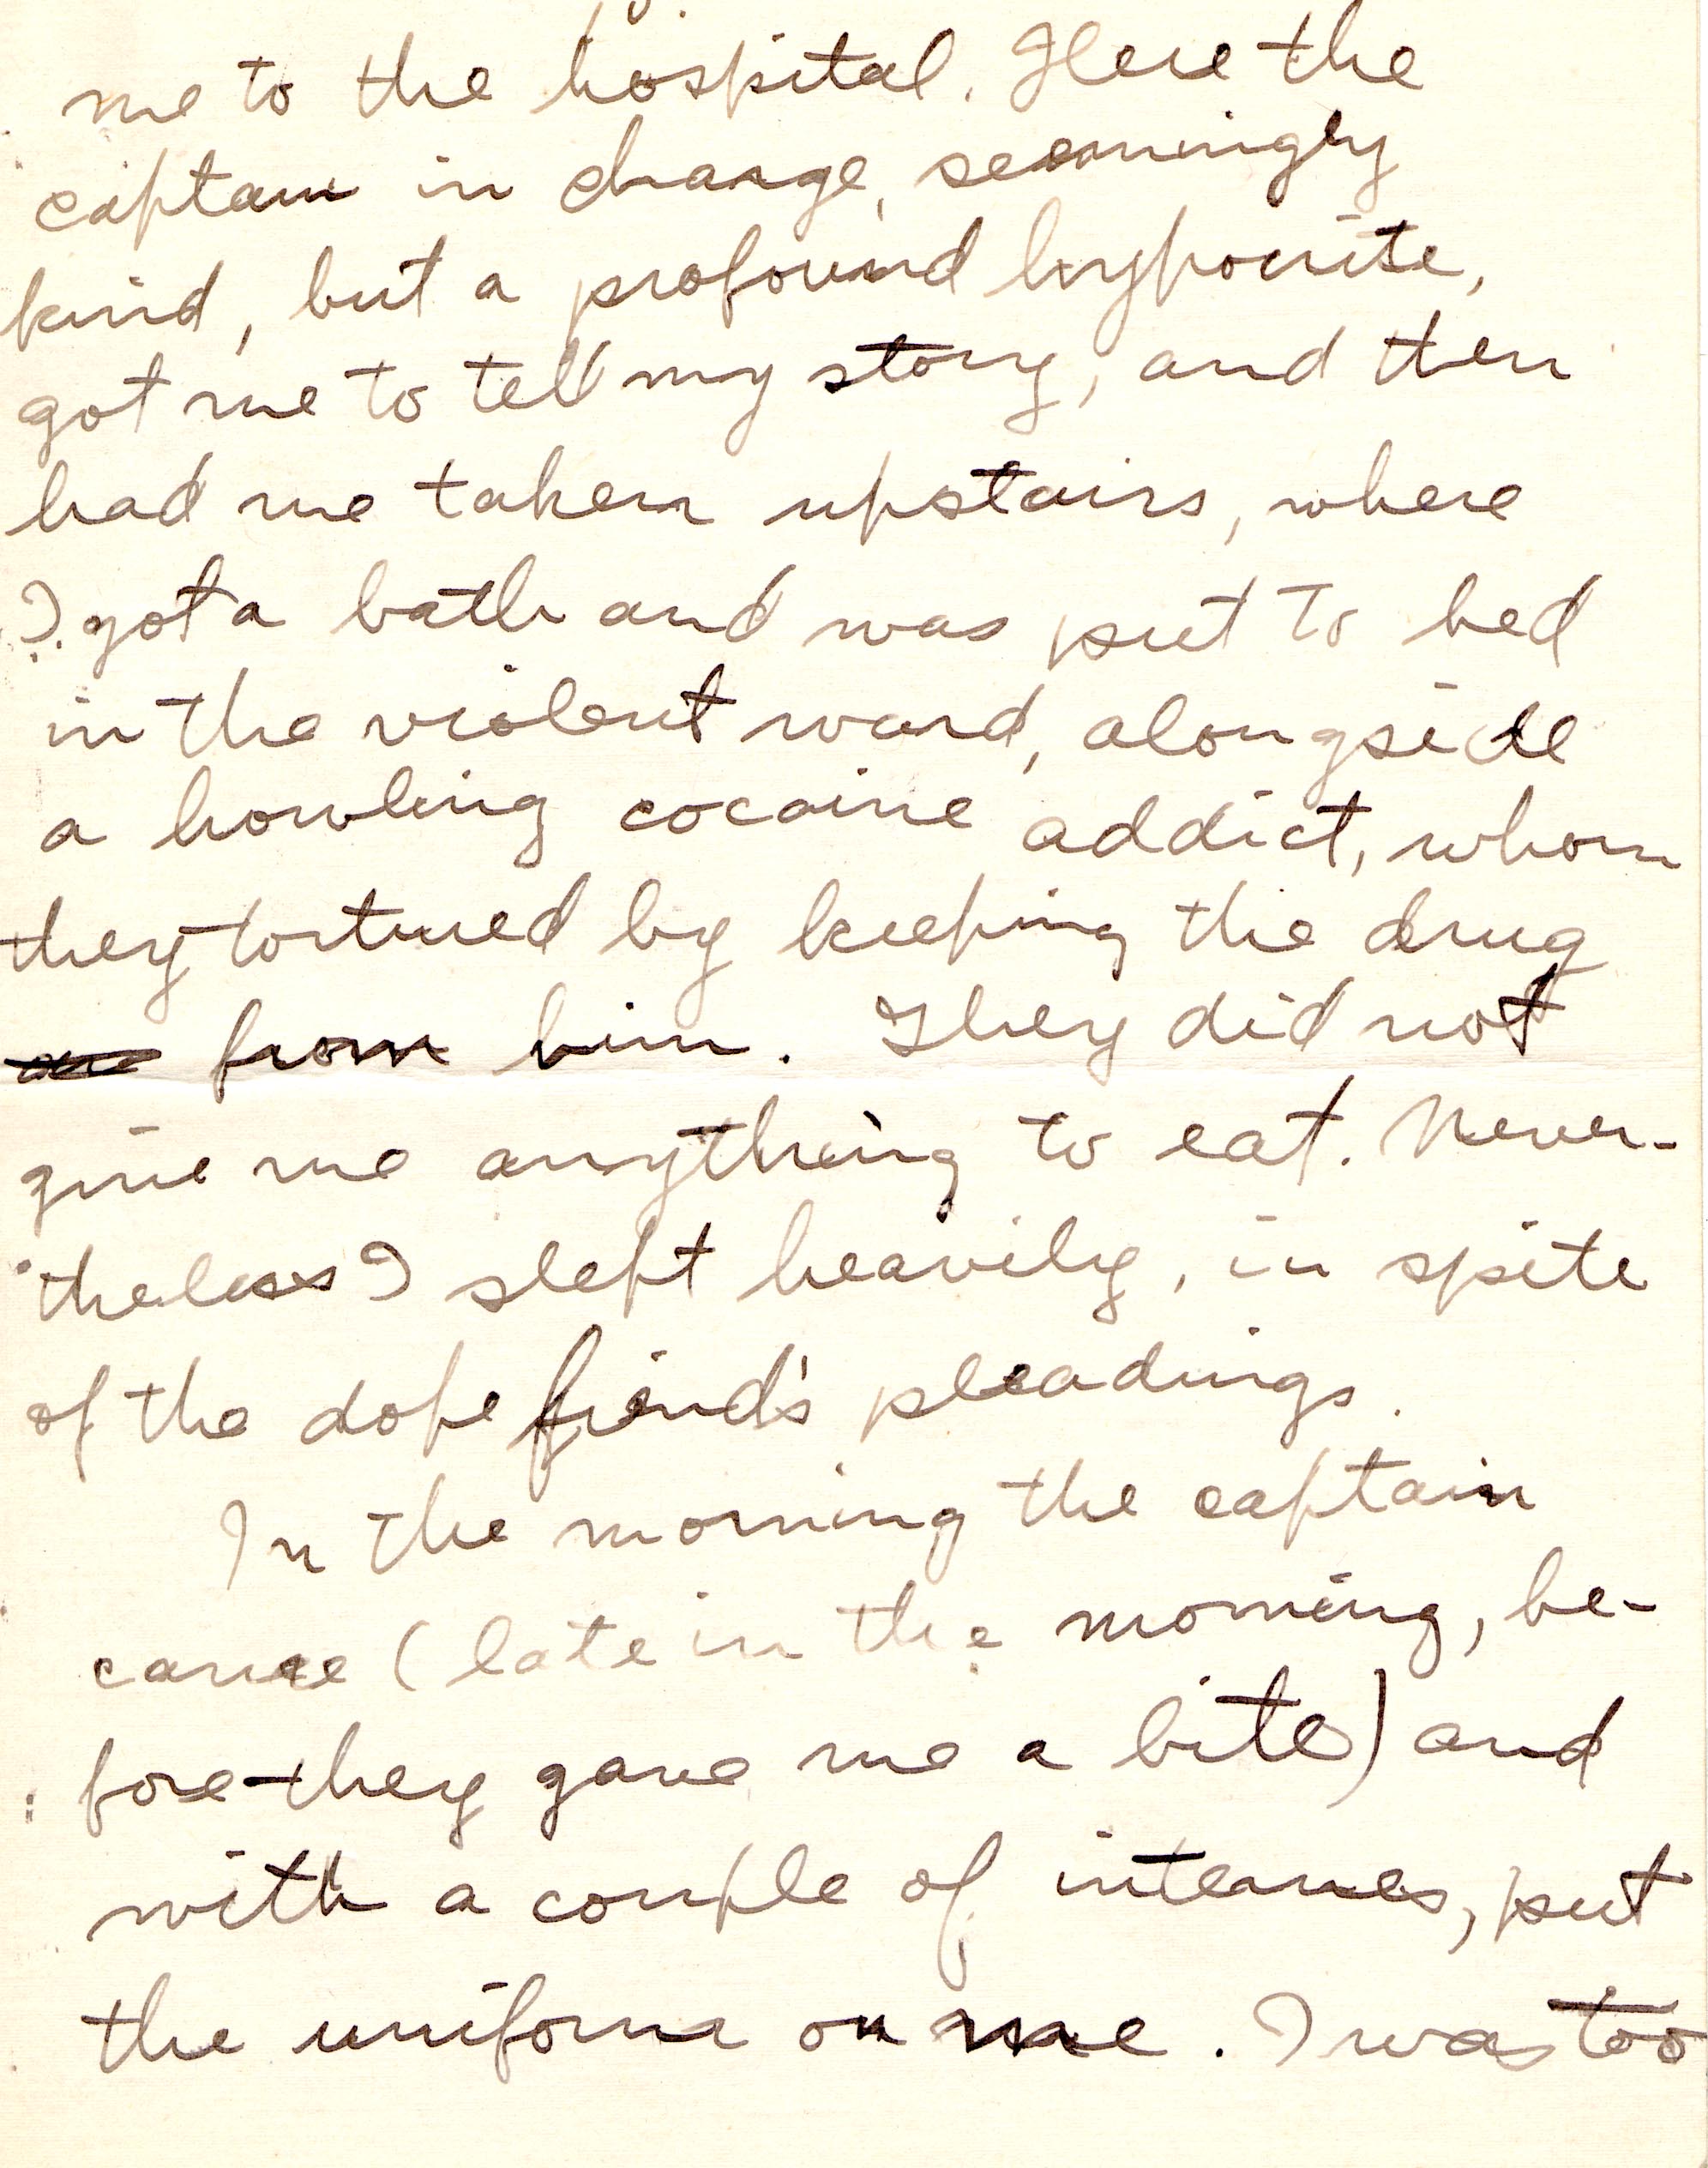 me to the hospital. Here the
captain in charge, seemingly
kind, but a profound hypocrite,
got me to tell my story, and then
had me taken upstairs, where
I got a bath and was put to bed
in the violent ward, alongside
a howling cocaine addict, whom
they tortured by keeping the drug
from him. They did not
give me anything to eat. Never-
theless I slept heavily, in spite
of the dope fiend's pleadings.
In the morning the captain
came (late in the morning, be-
fore they gave me a bite) and
with a couple of internes, put
the uniform on me. I was too